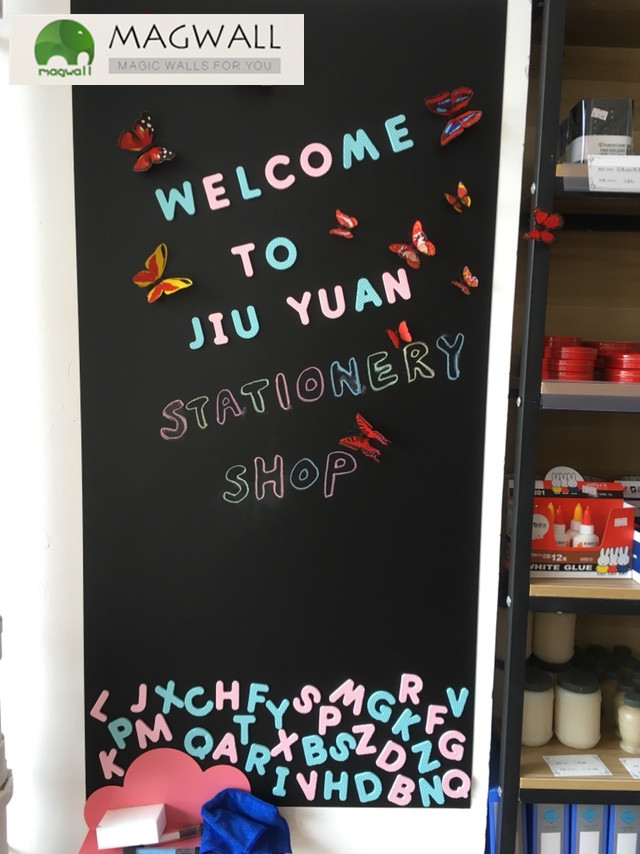 MAGWALL
magwall
MAGIC WALLS FOR YOU
WELCOME
TO
JIU YUAN
STATIONERY
SHOP
L J X C H F Y S P M G K R F V
P M Q A T R X B S Z D Z G
K I V H D B N Q
201
12
WHITE GLUE